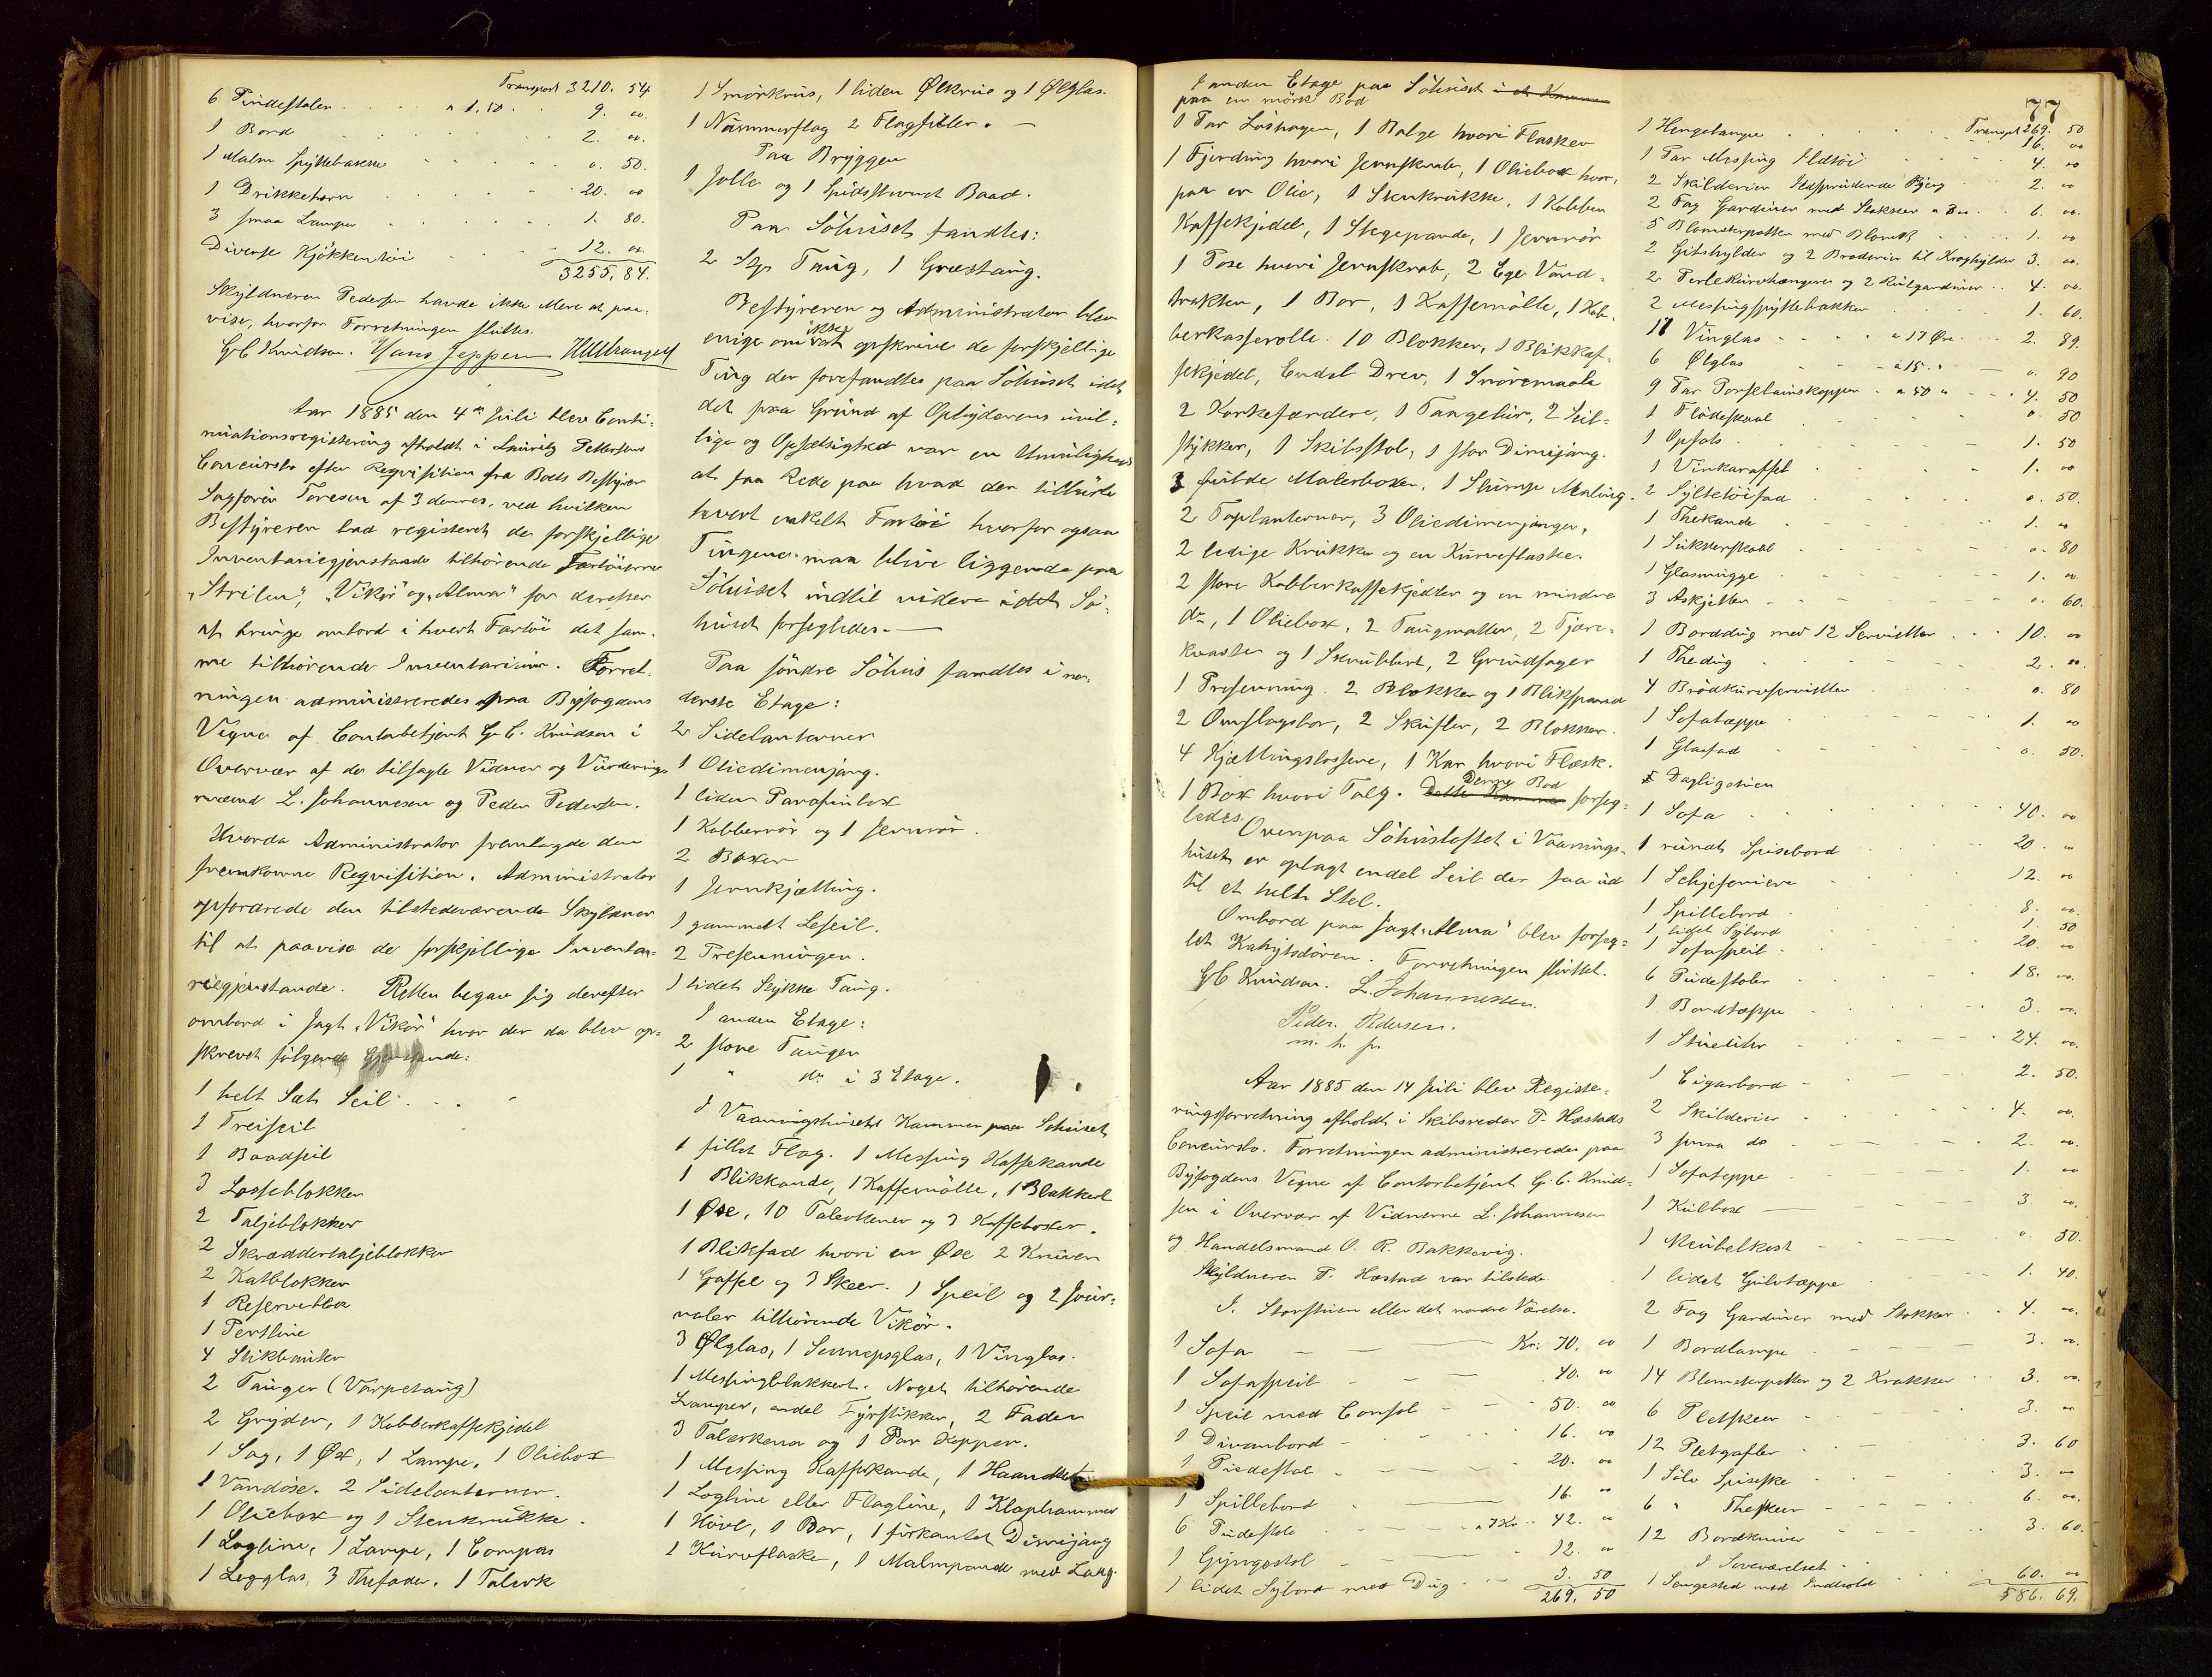 Transport 3210. 54
6 Pindestoler . . . a 1.50 . . 9. 00.
1 Bord . . . . 2. 00.
1 Malm Spyttebakke . . . 0. 50.
1 Drikkehorn . . . 20. 00
3 smaa Lamper . . . 1. 80.
Diverse Kjøkkentøi . . . 12. 00.
3255. 84.
Skyldneren Pedersen havde ikke Mere at paa-
vise, hvorfor Forretningen sluttes.
G C Knudsen. Hans Jeppsen
Aar 1885 den 4de Juli blev Conti-
nuationsregistering afholdt i Lauritz Pettersens
Concursbo efter Requisition fra Boets Bestyrer
Sagfører Toresen af 3 dennes, ved hvilken
Bestyreren bad registeret de forskjellige
Inventariegjenstande tilhørende Fartøierne
"Strilen", "Vikør" og "Alma" for derefter
at bringe ombord i hvert Fartøi det sam-
me tilhørende Inventarium. Forret-
ningen administreredes paa Byfogdens
Vegne af Contorbetjent G. C. Knudsen i
Overvær af de tilsagte Vidner og Vurderings-
mænd L. Johannesen og Peder Pedersen.
Hvorda Administrator fremlagde den
fremkomne Requisition. Administrator
opfordrede den tilstedeværende Skyldner
til at paavise de forskjellige Inventa-
riegjenstande. Retten begav sig derefter
ombord i Jagt "Vikør" hvor der da blev op-
skrevet følgende Gjenstande:
1 helt Sæt Seil . . .
1 Treiseil
1 Baadseil
3 Losseblokker
2 Taljeblokker
2 Skræddertaljeblokker
2 Katblokker
1 Reserveblok
1 Pertline
4 Stikbunker
2 Tauger (Varpetaug)
2 Gryder, 1 Kobberkaffekjedel
1 Sag, 1 Øx, 1 Lampe, 1 Oliebox
1 Vandøse. 2 Sidelanterner.
1 Oliebox og 1 Stenkrukke.
1 Logline, 1 Lampe, 1 Compas
1 Logglas, 3 Thefader. 1 Talerk
1 Smørkrus, 1 liden Ølkrus og 1 Ølglas.
1 Nummerflag 2 Flagfiller. —
Paa Bryggen
1 Jolle og 1 Spidsstevnet Baad.
Paa Søhuset fandtes:
2 Stp Taug, 1 Græstaug.
Bestyreren og Administrator blev
enige om ikke at opskrive de forskjellige
Ting der forefandtes paa Søhuset idet
det paa Grund af Opbyderens uvil-
lige og Opsetsighed var en Umulighed
at faa Rede paa hvad der tilhørte
hvert enkelt Fartøi hvorfor ogsaa
Tingene maa blive liggende paa
Søhuset indtil videre idet Sø-
huset forsegledes. —
Paa søndre Søhus fandtes i ne-
derste Etage:
2 Sidelanterner
1 Oliedimenjang.
1 liden Parafinbox
1 Kobberrør og 1 Jernrør.
2 Boxer
1 Jernkjætting.
1 gammelt Leseil.
2 Presenninger.
1 lidet Stykke Taug.
I anden Etage:
2 store Tauger
1 " do i 3 Etage.
I Vaaningshusets Kammer paa Søhuset
1 fillet Flag. 1 Messing Kaffekande
1 Blikkande, 1 Kaffemølle, 1 Blakkert
1 Øse, 10 Talerkener og 3 Kaffeboxer.
1 Blikfad hvori en Øse 2 Kniver
1 Gaffel og 3 Skeer. 1 Speil og 2 Jour-
naler tilhørende Vikør.
3 Ølglas, 1 Sennepsglas, 1 Vinglas.
1 Messingblakkert. Noget tilhørende
Lamper, endel Fyrstikker, 2 Fader
3 Talerkener og 1 Par Kopper.
1 Messing Kaffekande, 1
1 Logline eller Flagline, 1 Klophammer
1 Høvl, 1 Bor, 1 firkantet Dimijang
1 Kurveflaske, 1 Malmpande med Laag.
I anden Etage paa Søhuset i et Kammer
paa en mørk Bod
1 Par Loshager, 1 Balge hvori Flasker
1 Fjerding hvori Jernskrab, 1 Oliebox hvor-
paa en Olie, 1 Stenkrukke, 1 Kobber
Kaffekjedel, 1 Stegepande, 1 Jernrør
1 Pose hvori Jernskrab, 2 Ege Vand-
trakter, 1 Bor, 1 Kaffemølle, 1 Kob-
berkasserolle. 10 Blokker, 1 Blikkaf-
fekjedel, Endel Drev, 1 Snøremaale
2 Korkefendere, 1 Taugelur, 2 Seil-
stykker, 1 Skibsstol, 1 stor Dimijang.
3 fulde Malerboxer, 1 Slump Maling.
2 Toplanterner, 3 Oliedimenjanger,
2 ledige Krukker og en Kurveflaske.
2 store Kobberkaffekjedler og en mindre
do, 1 Oliebox, 2 Taugmatter, 2 Tjære-
kvaster og 1 Skrubbert, 2 Grundsager
1 Presenning. 2 Blokker og 1 Blikspand
2 Omslagsbor, 2 Skufler, 2 Blokker.
4 Kjættingslossere, 1 Kar hvori Flæsk.
1 Box hvori Talg. Dette Kammer Denne Bod forseg-
ledes.
Ovenpaa Søhusloftet i Vaanings-
huset er oplagt endel Seil der saa ud
til et helt Stel.
Ombord paa Jagt "Alma" blev forseg-
let Kahytsdøren. Forretningen sluttet.
G C Knudsen. L. Johannessen.
Peder Pedersen.
m. h. p.
Aar 1885 den 14 Juli blev Registe-
ringsforretning afholdt i Skibsreder P. Hæstads
Concursbo. Forretningen administreredes paa
Byfogdens Vegne af Contorbetjent G. C. Knud-
sen i Overvær af Vidnerne L. Johannesen
og Handelsmand O. R. Bakkevig.
Skyldneren P. Hæstad var tilstede.
I. Storstuen eller det nordre Værelse.
1 Sofa — — Kr. 70. 00
1 Sofaspeil - - - 40. 00
1 Speil med Consol - - - 50. 00
1 Divanbord - - - 16. 00
1 Pindestol - - - 20. 00
1 Spillebord - - - 16. 00
6 Pindestole . . . a 7 Kr. - 42. 00
1 Gyngestol - - - 12. 00
1 lidet Sybord med Dug . - 3. 50
269. 50
77
Transport 269. 50
1 Hengelampe . . . . 16. 00
1 Par Messing Ildtøi . . . 4. 00
2 Skilderier Ildsprudende Bjerg . 2. 00
2 Fag Gardiner med Stokker a 3 . . 6. 00.
5 Blomsterpotter med Blomst . . . 1. 00
2 Gibshylder og 2 Broderier til Kroghylder 3. 00.
2 Perlekurvehængere og 2 Rulgardiner . . 4. 00.
2 Messingspyttebakker . . . 1. 60.
17 Vinglas . . . a 17 Øre . . 2. 89.
6 Ølglas . . . a 15 . . 0. 90
9 Par Porselainskopper . a 50 " . . 4. 50
1 Flødeskaal . . . 0. 50
1 Opsats . . . 1. 50
1 Vinkaraffel . . . 1. 00
2 Syltetøifad . . . 0. 50.
1 Thekande . . . 1. 00
1 Sukkerskaal . . . 0. 80
1 Glasmugge . . . 1. 00
3 Askjetter . . . 0. 60.
1 Borddug med 12 Servietter . . . 10. 00
1 Thedug . . . 2. 00.
4 Brødkurvservietter . . . 0. 80
1 Sofatæppe . . . 1. 00
1 Glasfad . . . 0. 50.
I Dagligstuen
1 Sofa . . . 40. 00
1 rundt Spisebord . . . 20. 00
1 Schjefoniere . . . 12. 00
1 Spillebord . . . 8. 00.
1 lidet Sybord . . . 1. 50
1 Sofaspeil . . . 20. 00
6 Pindestoler . . . 18. 00.
1 Bordtæppe . . . 3. 00.
1 Stueuhr . . . 24. 00.
1 Cigarbord . . . 2. 50.
2 Skilderier . . . 4. 00.
3 smaa do . . . 2. 00.
1 Sofateppe . . . 1. 00
1 Kulbox . . . 3. 00.
1 Meubelkost . . . 0. 50.
1 lidet Gulvtæppe . . . 1. 40.
2 Fag Gardiner med Stokker . . 4. 00.
1 Bordlampe . . . 3. 00.
14 Blomsterpotter og 2 Krakker . . 3. 00.
6 Pletskeer . . . 3. 00
12 Pletgafler . . . 3. 60
1 Sølv Spiseske . . . 3. 00
6 " Theskeer . . . 6. 00.
12 Bordkniver . . . 3. 60.
I Soveværelset . .
1 Sengested med Indhold . . . 60. 00
586. 69.